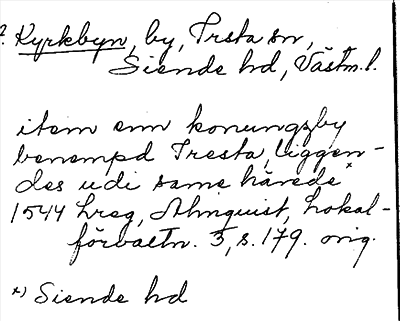 ? Kyrkbyn, by, Irsta sn,
Siende hd, Västm.l.
item enn konungzby
benempd Iresta, liggen-
des udi same härede*
1544 hreg, Almquist, Lokal-
förvaltn. 3, s. 179. orig.
*) Siende hd